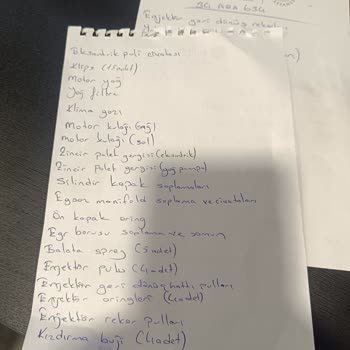 34 NOA 634
Enjektör geri dönüş rekor
Eksandrik puli civatası
Klips (15 adet)
Motor yağ
Yağ filtre
Klima gazı
Motor kulağı (sağ)
Motor kulağı (sol)
Zincir palet gergisi (eksandrik)
Zincir palet gergisi (yağ pompa)
Silindir kapak saplamaları
Egzoz manifold saplama ve civataları
Ön kapak oring
Egr borusu saplama ve somun
Balata sprey (5 adet)
Enjektör pulu (4 adet)
Enjektör geri dönüş hattı pulları
Enjektör oringleri (4 adet)
Enjektör rekor pulları
Kızdırma buji (4 adet)